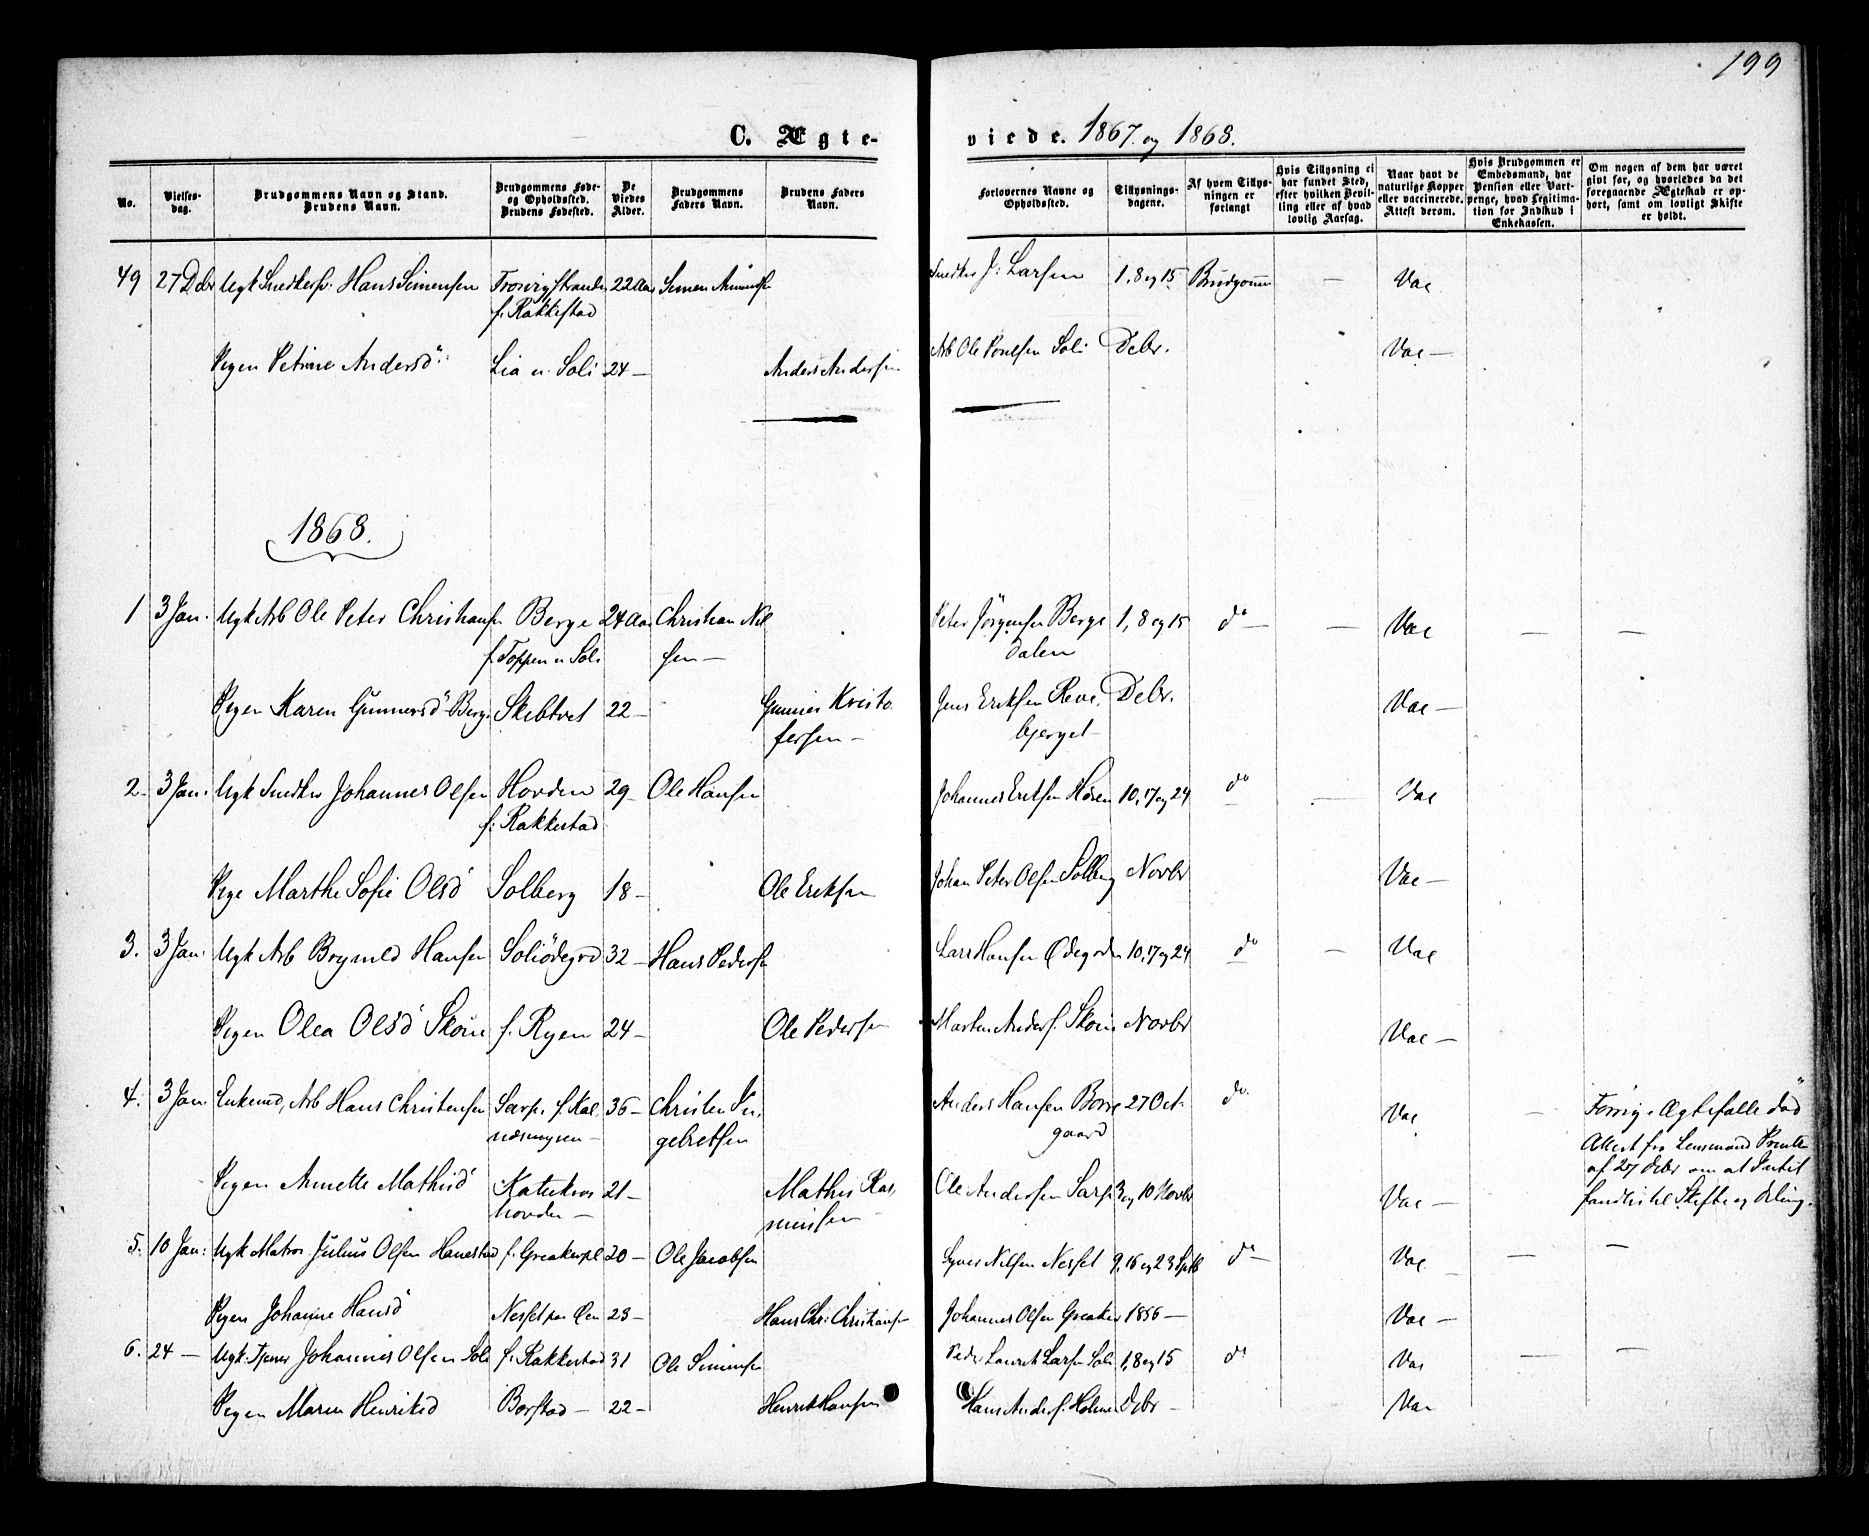 199
C. Ægte-
viede. 1867. og 1868.
No.
Vielses-
dag.
Brudgommens Navn og Stand.
Brudens Navn.
Brudgommens Føde-
og Opholdssted.
Brudens Fødested.
De
Viedes
Alder.
Brudgommens
Faders Navn.
Brudens Faders
Navn.
Forlovernes Navne og
Opholdssted.
Tillysnings-
dagene.
Af hvem Tillys-
ningen er
forlangt
Hvis Tillysning ei
har fundet Sted,
efter hvilken Bevil-
ling eller af hvad
lovlig Aarsag.
Naar havt de
naturlige Kopper
eller vaccinerede.
Attest derom.
Hvis Brudgommen er
Embedsmand, har
Pension eller Vart-
penge, hvad Legitima-
tion for Indskud i
Enkekassen.
Om nogen af dem har været
givt før, og hvorledes da det
foregaaende Ægteskab er op-
hørt, samt om lovligt Skifte
er holdt.
49 27 Debr Ugk Snedkersv. Hans Simensen 22 Aar Simen Snedker J: Larsen 1, 8 og 15 Brudgommen — Vac
f. Rakkestad
Pigen Petrine Andersd. Lia u. Soli 24 — Anders Andersen Arb Ole Poulsen Soli Debr. Vac —
1868.
1 3 Jan. Ugk Arb Ole Peter Christiansen Berge 24 Aar Christian Niel Peter Jørgensen Berge 1, 8 og 15 do — — Vac — —
f. Toppen u Soli sen — dalen
Pigen Karen Gunnersd Berg. Skibtvet 22 — Gunner Kristo Jens Eriksen Reve Debr. Vac —
fersen — bjerget
2. 3 Jan. Ugk Snedker Johannes Olsen Hovden 29 — Ole Hansen Johannes Eriksen 10, 17 og 24 do — Vac
f. Rakkestad
Pige Marthe Sofie Olsd Solberg 18 — Ole Eriksen Johan Peter Olsen Solberg Novbr Vac —
3. 3 Jan. Ugk Arb Brynild Hansen Soliødegrd 32 — Hans Pedersen Lars Hansen Ødegrden 10, 17 og 24 do — Vac
Pigen Olea Olsd Skoue f. Ryen 24 — Ole Pedersen Morten Anders. Skoue Novbr Vac —
4. 3 Jan. Enkemd, Arb Hans Christensen Sarp. f. Kal 36 — Christen In Anders Hansen Borre 27 Oct. do. Vac — Forrig Ægtefælle død
næsmyren — gebretsen gaard Attest fra Lensmand
af 27 Debr om at Intet
Pigen Annette Mathisd 21 — Mathis Ras Ole Andersen Sarp 3 og 10 Novbr Vac — fandtes til Skifte og Deling.
hovden — mussen —
5. 10 Jan. Ugk Matros Julius Olsen Hanestad f. Greakerpl 20 — Ole Jacobsen Syver Nilsen Nesset 9, 16 og 23 Sptb do — Vac — —
Pigen Johanne Hansd Nesset paa Øen 23 — Hans Chr: Christiansen Johannes Olsen Greaker 1866 — Vac —
6. 24 — Ugk. Tjener Johannes Olsen Soli f. Rakkestad 31 Ole Simensen Peder Laurits Larsen Soli 1, 8 og 15 do Vac — —
Pigen Maren Henriksd Borstad — 22 — Henrik Hansen Hans Anders. Holmen Debr — Vac